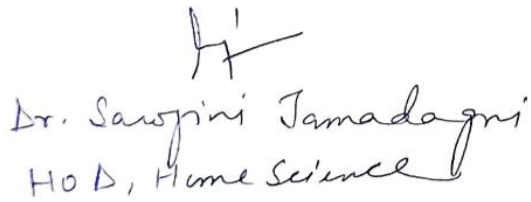 Dr. Sarojini Jamadagni
HOD, Home Science